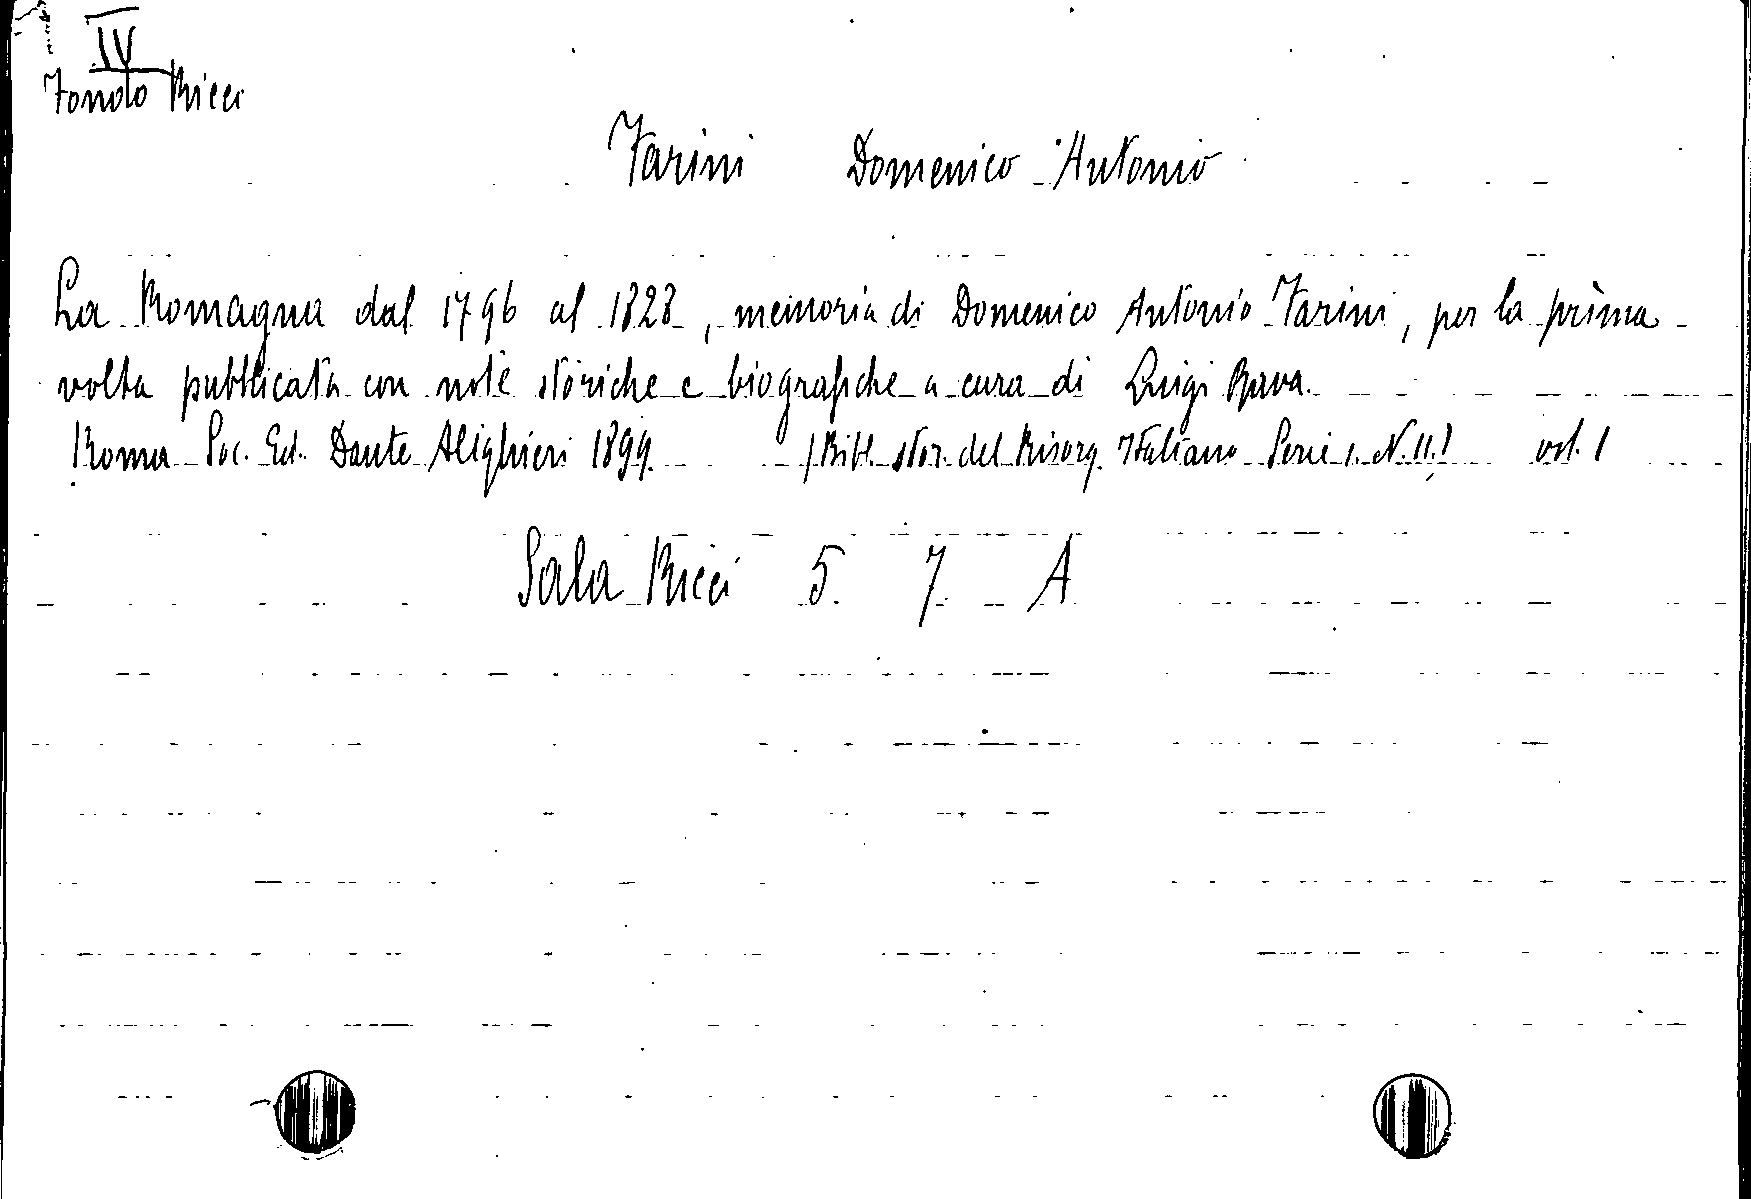 IV
Fondo Ricci
Farini Domenico Antonio
La Romagna dal 1796 al 1828, memoria di Domenico Antonio Farini, per la prima
volta pubblicata con note storiche e biografiche a cura di Luigi Rava.
Roma Soc. Ed. Dante Alighieri 1899. (Bibl. stor. del Risorg. Italiano Serie 1. N. 11.) vol. 1
Sala Ricci 5 7 A